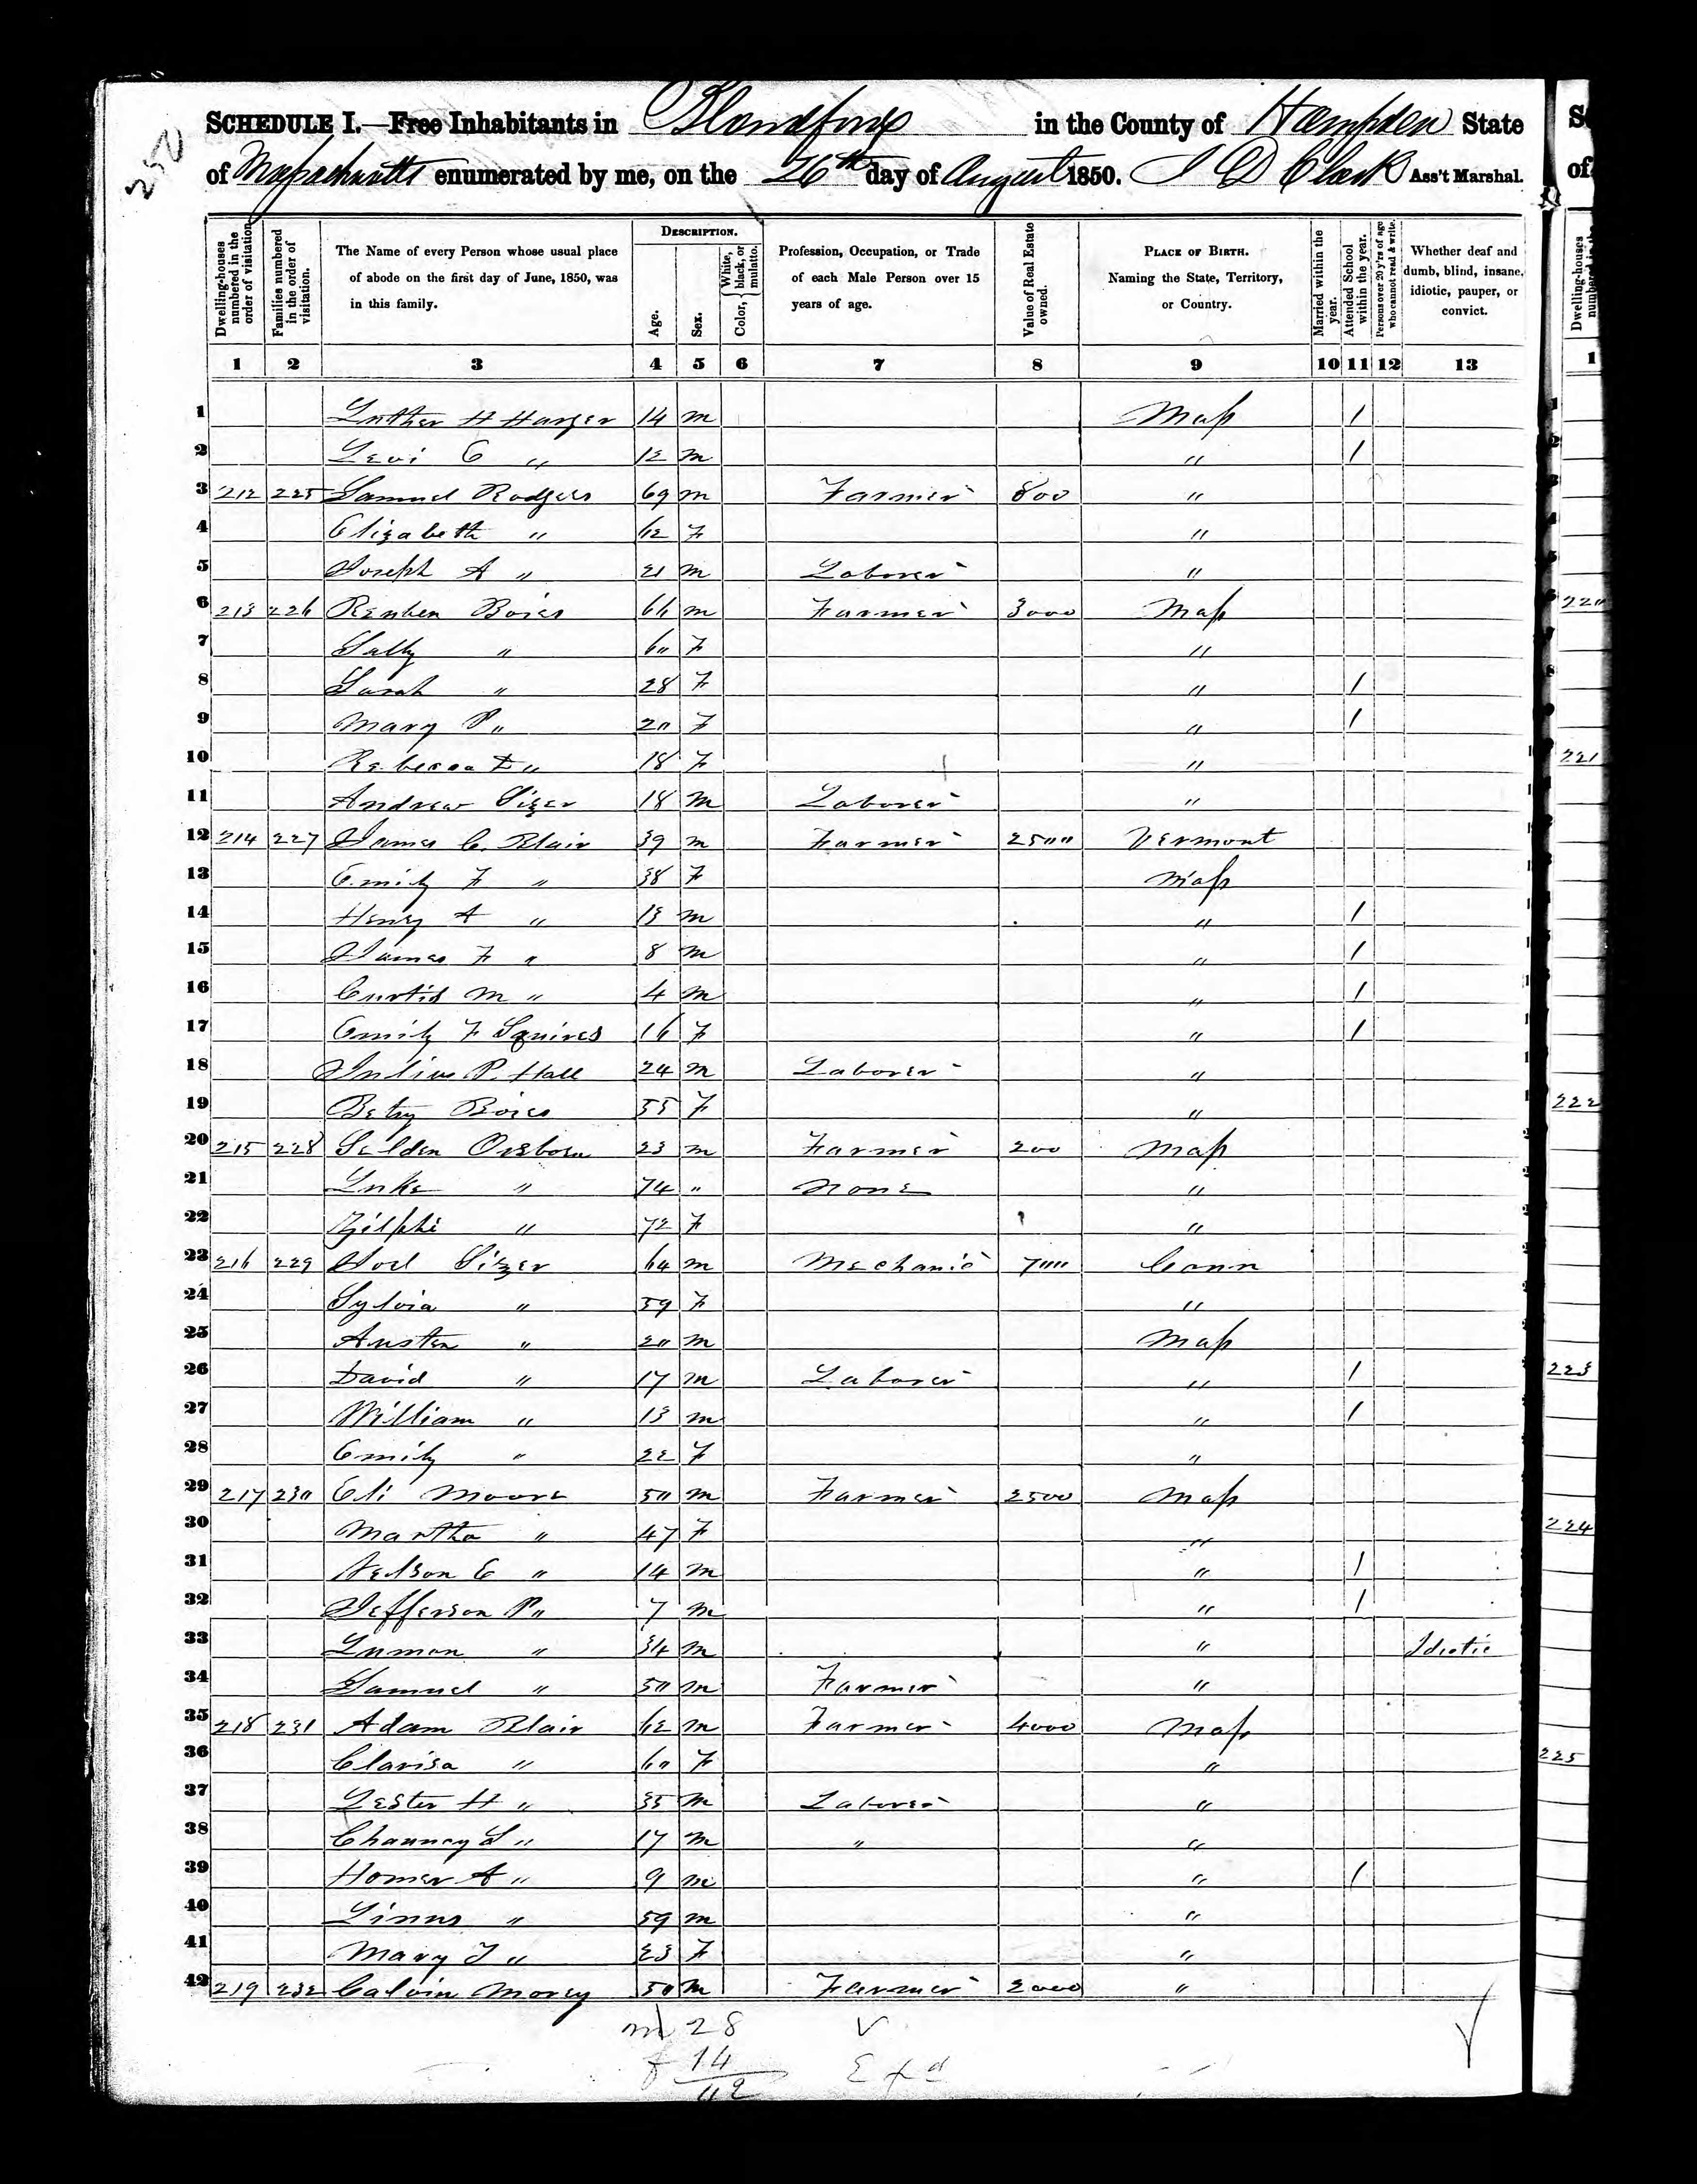 250
SCHEDULE I.—Free Inhabitants in Blandford in the County of Hampden State
of Massachusetts enumerated by me, on the 26th day of August 1850. J D Clark Ass't Marshal.
Dwelling-houses numbered in the order of visitation.
Families numbered in the order of visitation.
The Name of every Person whose usual place of abode on the first day of June, 1850, was in this family.
DESCRIPTION.
Age.
Sex.
Color, { White, black, or mulatto.
Profession, Occupation, or Trade of each Male Person over 15 years of age.
Value of Real Estate owned.
PLACE OF BIRTH. Naming the State, Territory, or Country.
Married within the year.
Attended School within the year.
Persons over 20 y'rs of age who cannot read & write.
Whether deaf and dumb, blind, insane, idiotic, pauper, or convict.
1 2 3 4 5 6 7 8 9 10 11 12 13
1 Luther H Harger 14 m Mass /
2 Levi C " 12 m " /
3 212 225 Samuel Rodgers 69 m Farmer 800 "
4 Elizabeth " 62 F "
5 Joseph A " 21 m Laborer "
6 213 226 Reuben Boies 66 m Farmer 3000 Mass
7 Sally " 60 F "
8 Sarah " 28 F " /
9 Mary P " 20 F " /
10 Rebecca D " 18 F "
11 Andrew Sizer 18 m Laborer "
12 214 227 James C. Blair 39 m Farmer 2500 Vermont
13 Emily F " 38 F Mass
14 Henry A " 13 m " /
15 James F " 8 m " /
16 Curtis M " 4 m " /
17 Emily F Squires 16 F " /
18 Julius P. Hall 24 m Laborer "
19 Betsy Boies 55 F "
20 215 228 Selden Osborn 23 m Farmer 200 Mass
21 Luke " 74 " None "
22 Zilphi " 72 F "
23 216 229 Joel Sizer 64 m Mechanic 700 Conn
24 Sylvia " 59 F "
25 Austen " 20 m Mass
26 David " 17 m Laborer " /
27 William " 13 m " /
28 Emily " 22 F "
29 217 230 Eli Moore 50 m Farmer 2500 Mass
30 Martha " 47 F "
31 Nelson E " 14 m " /
32 Jefferson P " 7 m " /
33 Luman " 34 m " Idiotic
34 Samuel " 50 m Farmer "
35 218 231 Adam Blair 62 m Farmer 4000 Mass
36 Clarisa " 60 F "
37 Lester H " 35 m Laborer "
38 Chauncy L " 17 m " "
39 Homer A " 9 m " /
40 Linus " 59 m "
41 Mary J " 23 F "
42 219 232 Calvin Morey 50 m Farmer 2000 "
m 28
f 14
42
220
221
222
223
224
225